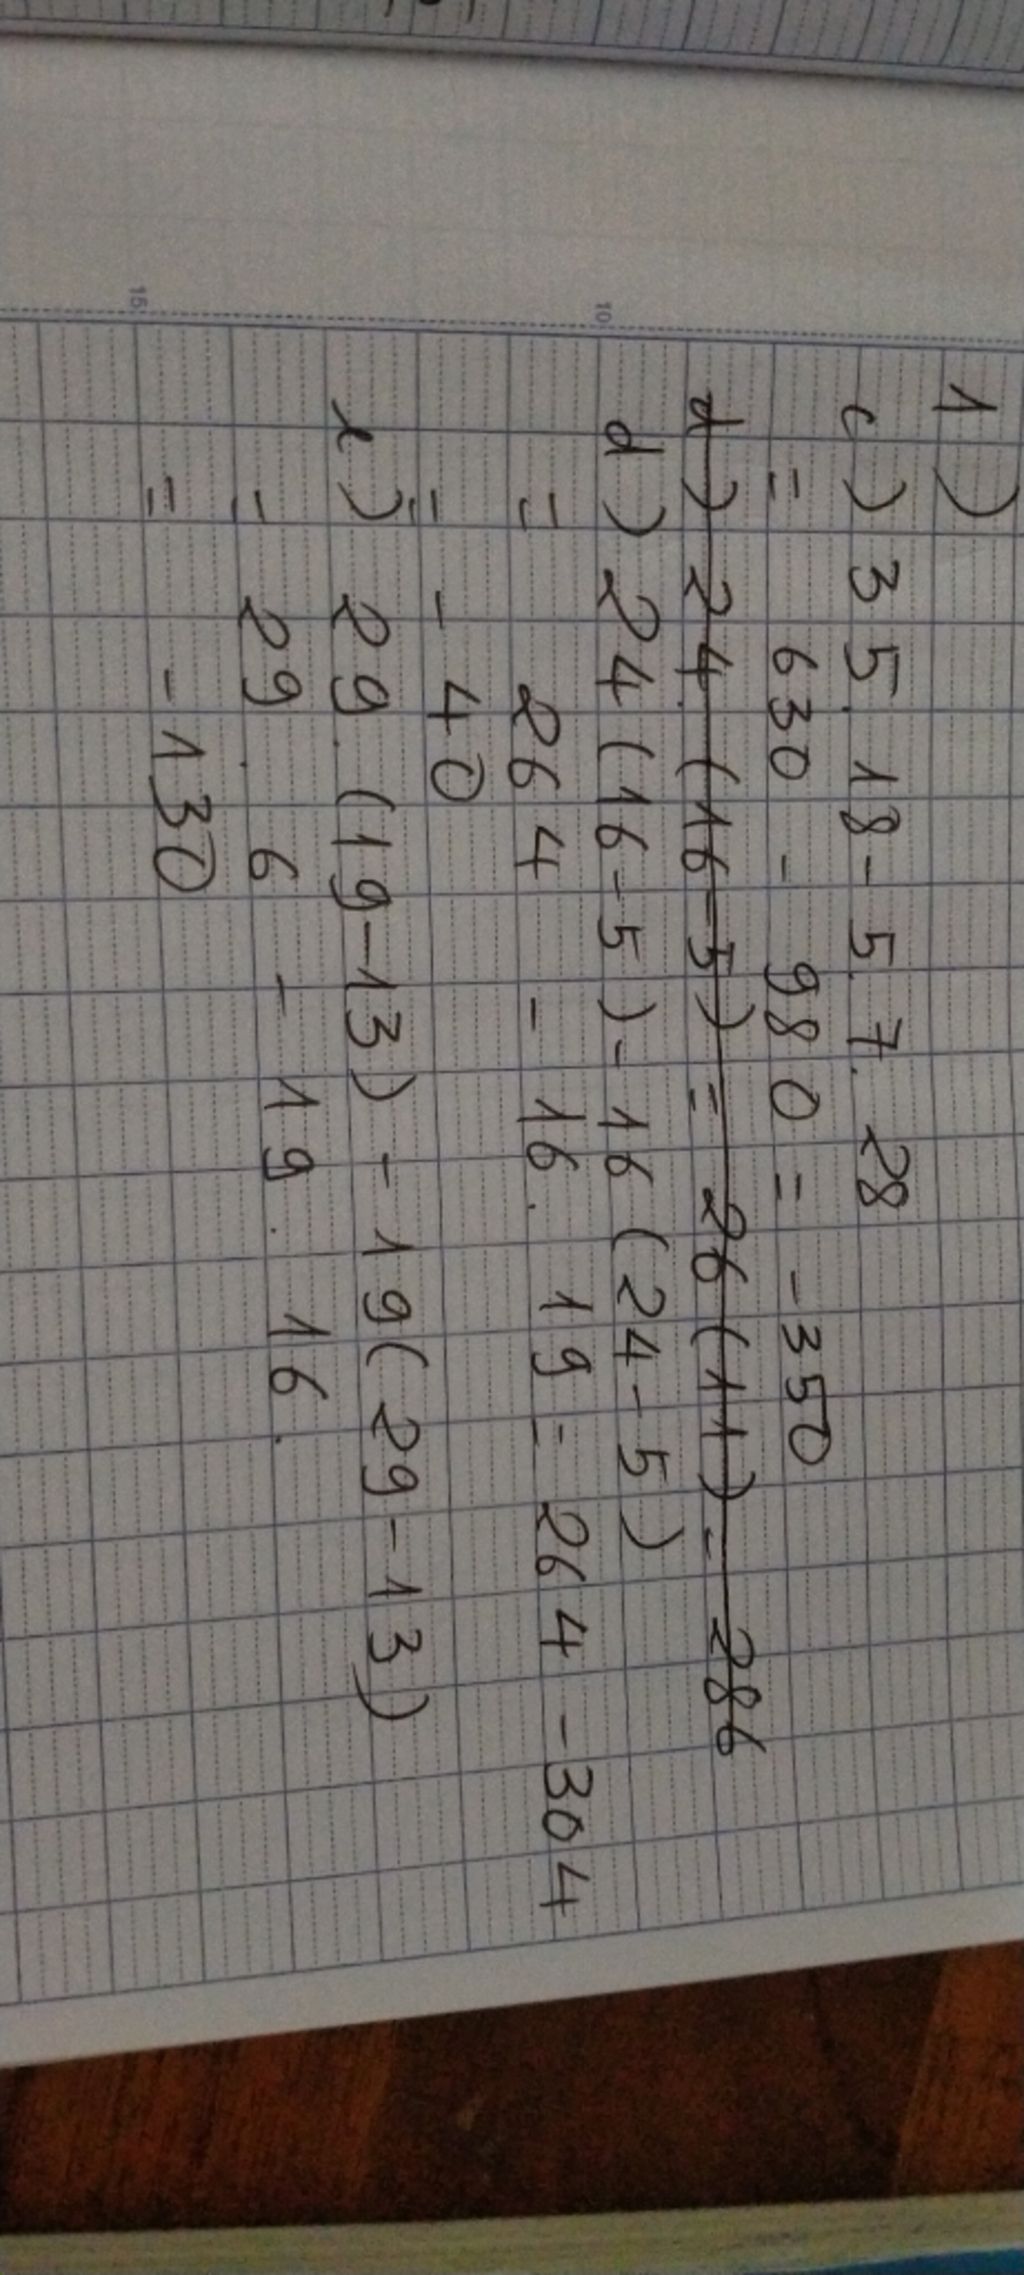 1)
c) 35. 18 - 5. 7. 28
= 630 - 980 = -350
d) 24. (16-5) = 26(11) = 286
d) 24(16-5) - 16(24-5)
= 264 - 16. 19 = 264 - 304
= - 40
e) 29. (19-13) - 19(29-13)
= 29. 6 - 19. 16.
= - 130
10
15